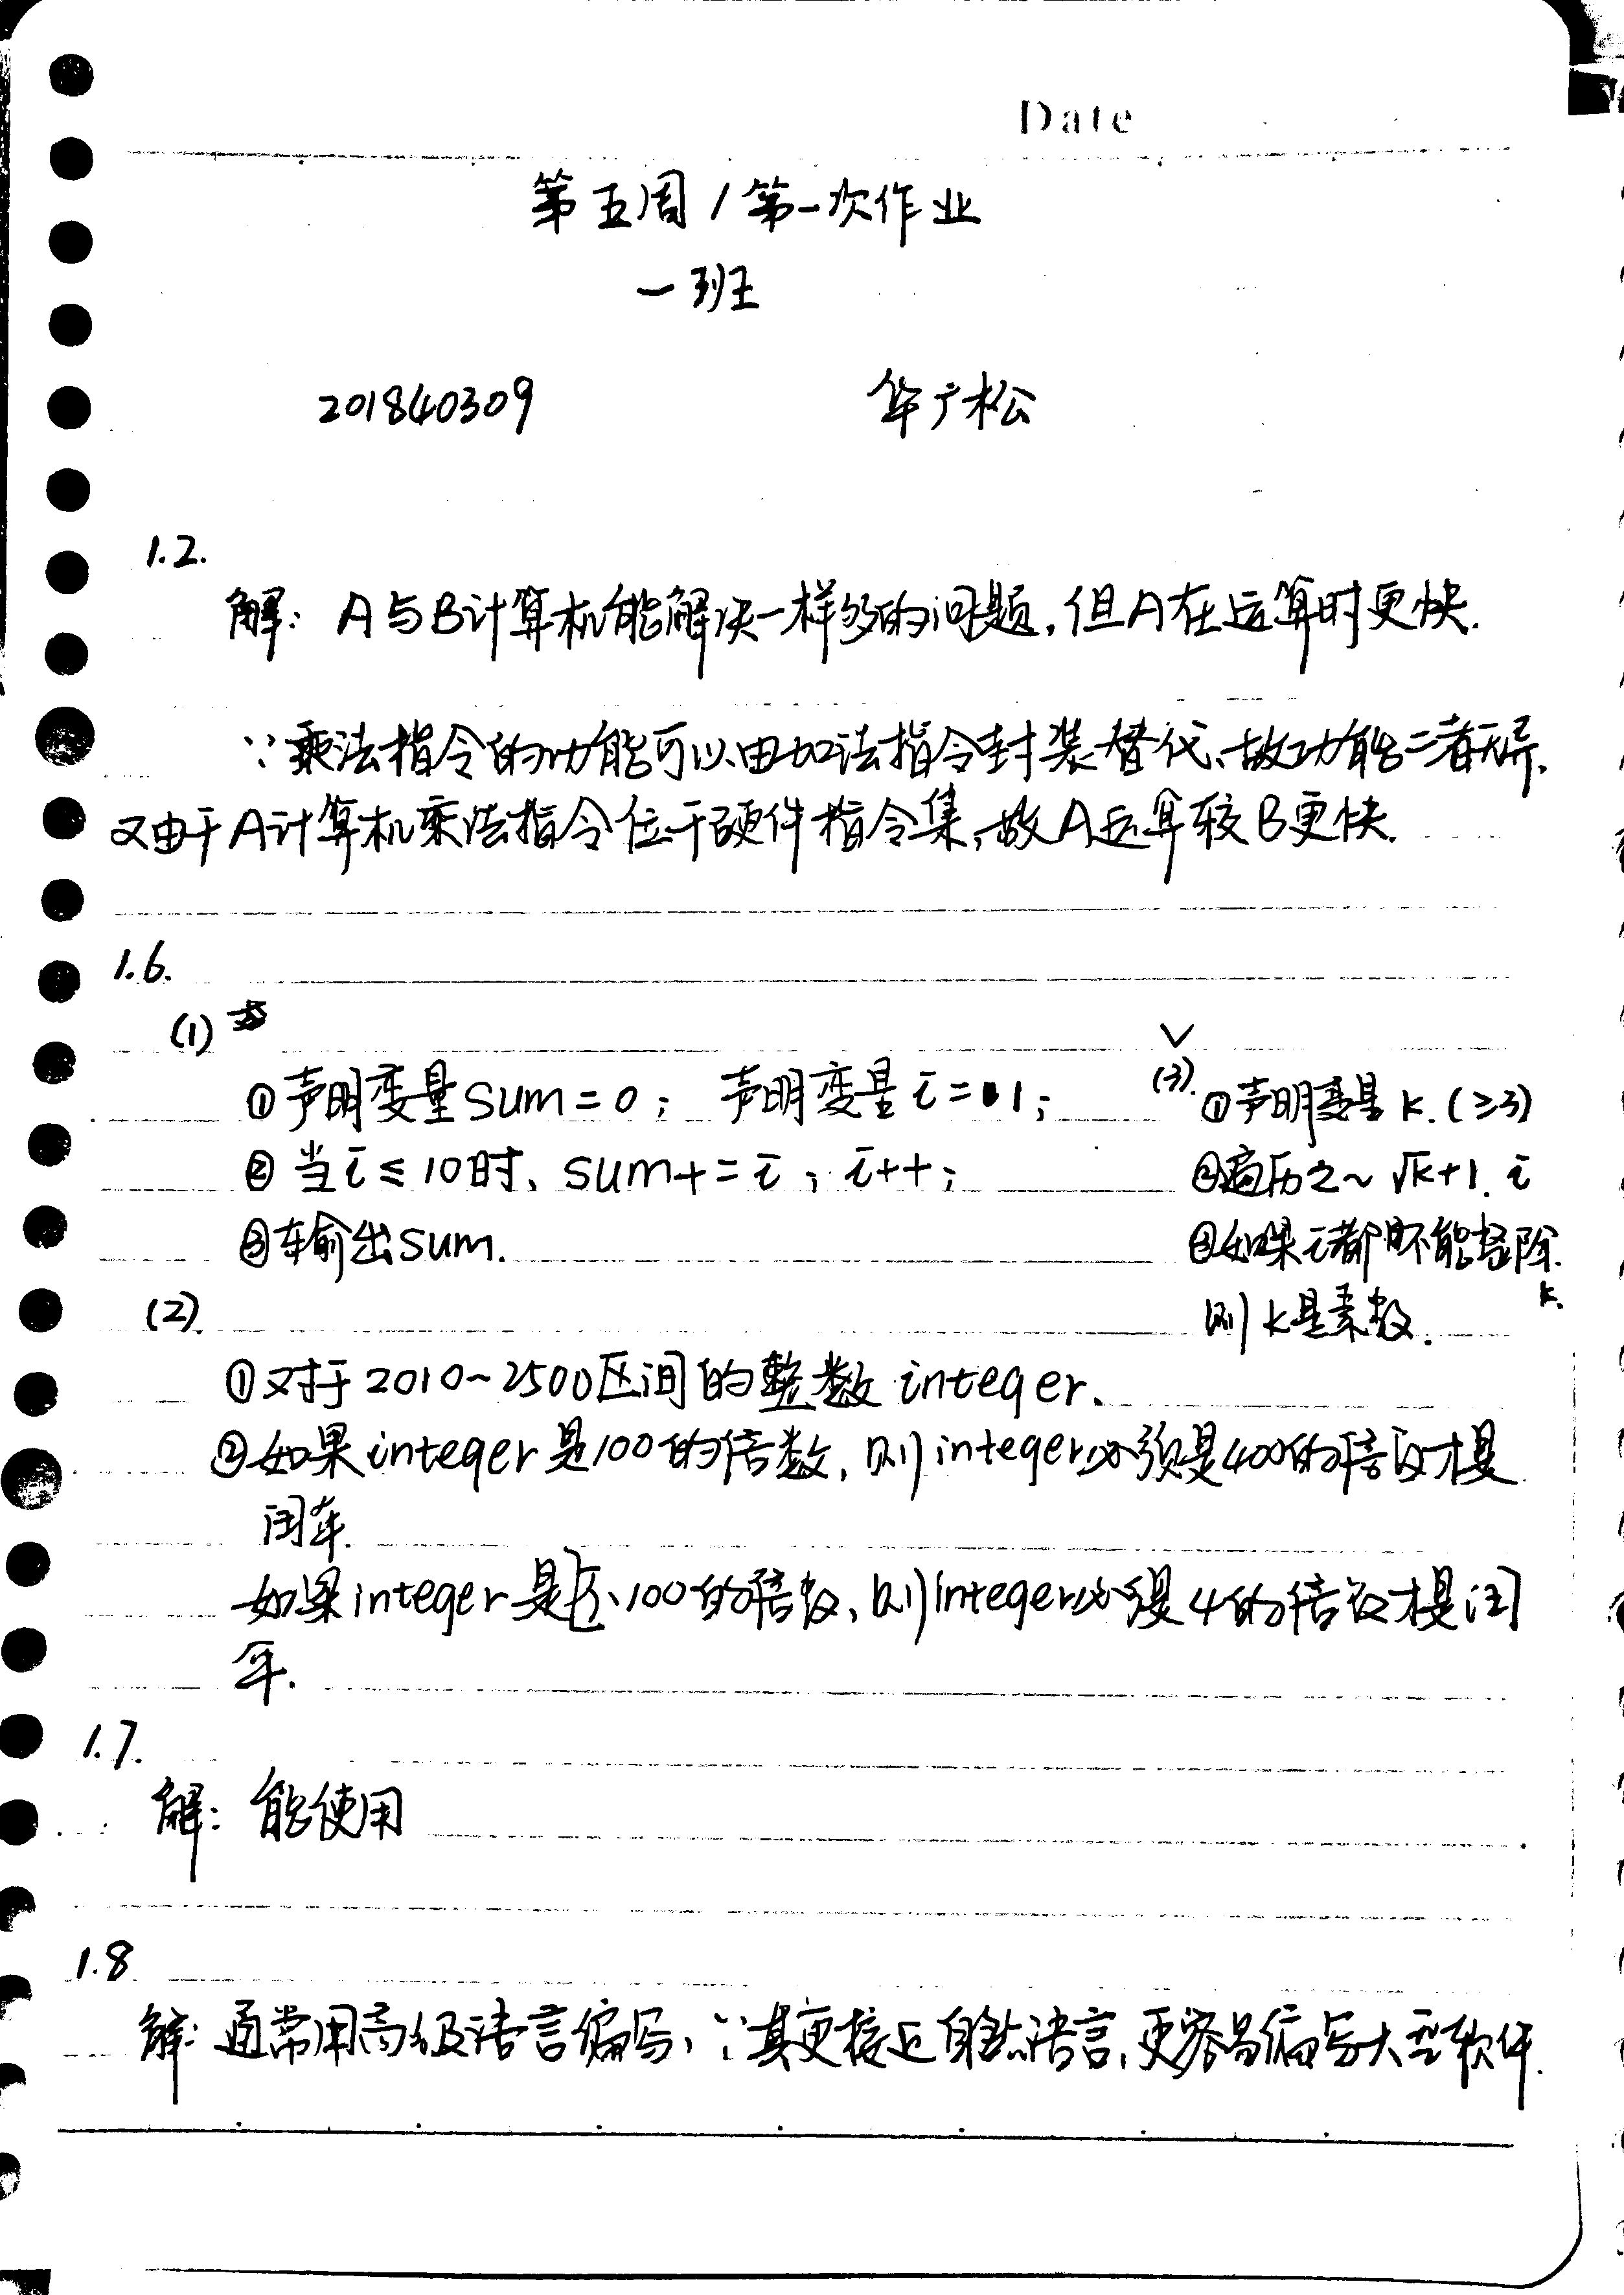 Date
第五周/第一次作业
一班
201840309 华广松
1.2.
解: A与B计算机能解决一样多的问题,但A在运算时更快.
∵乘法指令的功能可以由加法指令封装替代、故功能二者无异,
又由于A计算机乘法指令位于硬件指令集,故A运算较B更快.
1.6.
(1)
①声明变量sum=0; 声明变量i=1;
②当i≤10时、sum+=i; i++;
③输出sum.
(2)
①对于2010~2500区间的整数integer、
②如果integer是100的倍数,则integer必须是400的倍数才是
闰年.
如果integer是不100的倍数,则integer必须是4的倍数才是闰
年.
(3).
①声明变量k.(≥3)
②遍历2~√k+1. i
③如果i都不能整除k.
则k是素数.
1.7.
解: 能使用
1.8
解: 通常用高级语言编写,∵其更接近自然语言,更容易编写大型软件.